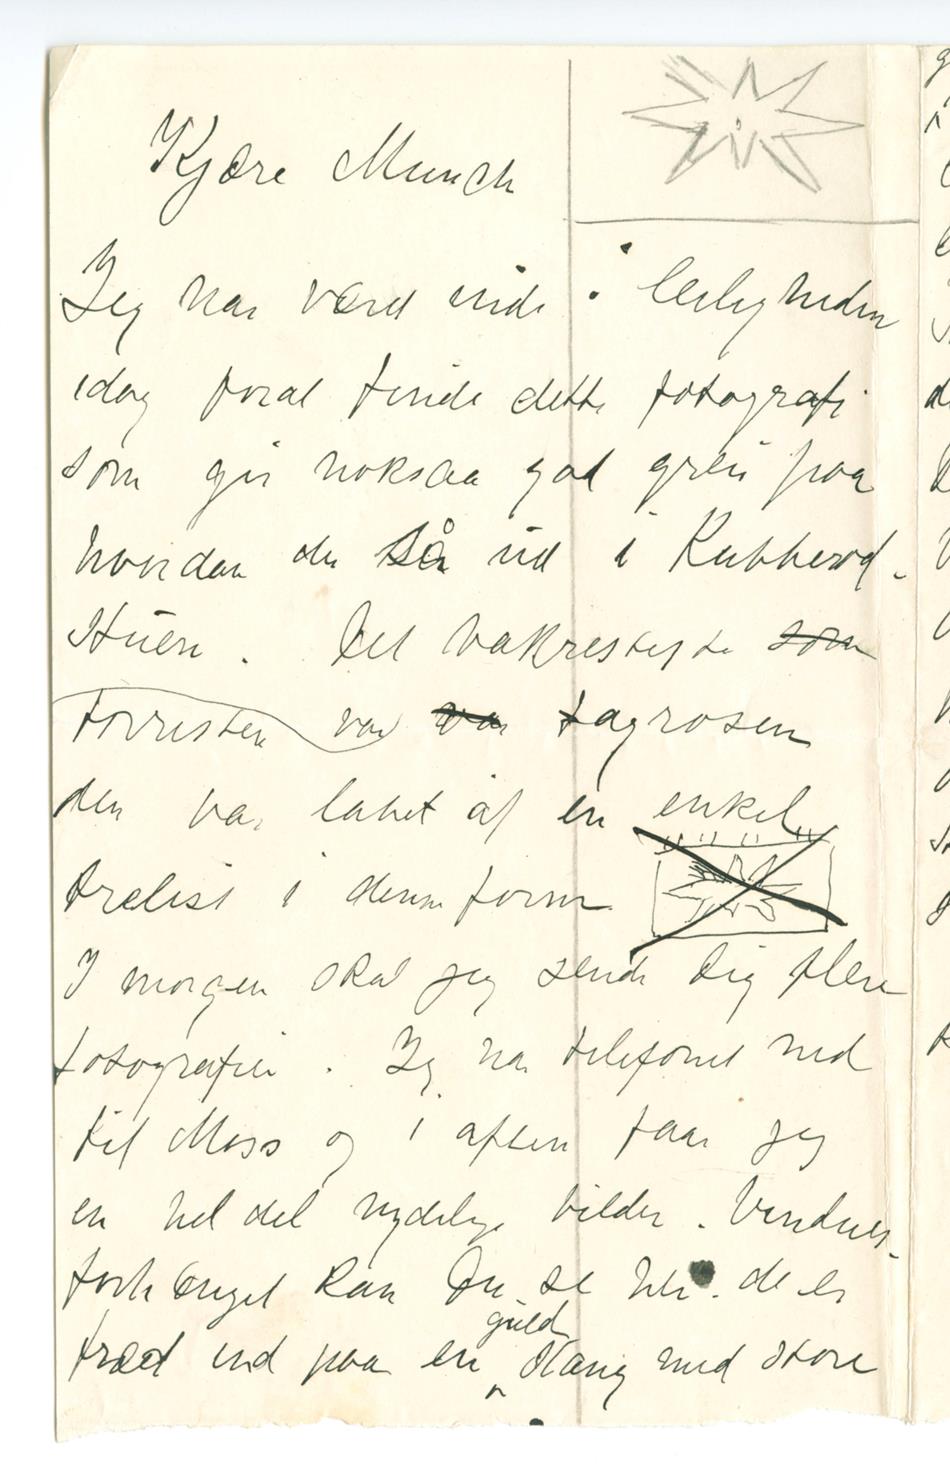 Kjære Munch
Jeg har været inde i leiligheden
idag foral finde dette fotografi
som gir noksaa god grei paa
hvordan der så ud i Kubberød-
Stuen. Det vakreste
forresten var var tagrosen
den var lavet af en enkel
trelist i denne form
I morgen skal jeg sende Dig flere
fotografier. Jeg har telefonert ned
til Moss og i aften faar jeg
en hel del nydelige bilder. Vindues-
forhænget kan Du se her. de er
træd ind paa en guld Stang med store